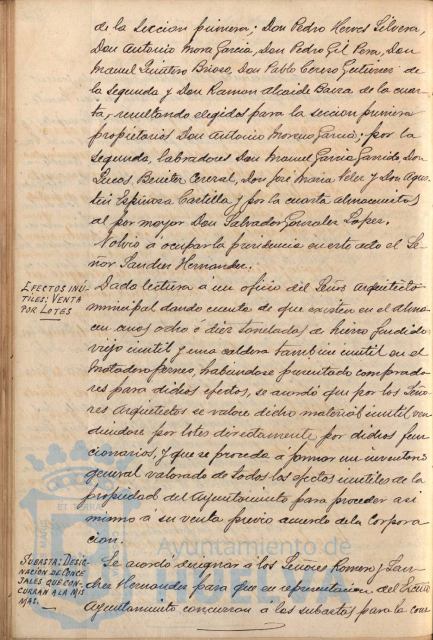 de la Seccion primera; Don Pedro Herves Silvera,
Don Antonio Mora Garcia, Don Pedro Gil Pera, Don
Manuel Quintero Brioso, Don Pablo Cerero Gutierrez de
la Segunda y Don Ramon Alcaide Baira de la cuar-
ta, resultando elegidos para la seccion primera
propietarios Don Antonio Moreno Garcia; por la
segunda, labradores Don Manuel Garcia Garrido, Don
Lucas Benitez Cereral, Don José Maria Velez y Don Agus-
tin Espinosa Castilla y por la cuarta almacenistas
al por mayor Don Salvador Gonzalez Lopez.
Volvió á ocupar la presidencia en este acto el Se-
ñor Sanchez Hernandez.
EFECTOS INÚ-
TILES; VENTA
POR LOTES
Dada lectura á un oficio del Señor Arquitecto
municipal dando cuenta de que existen en el Alma-
cen unas ocho ó diez toneladas de hierro fundido
viejo inutil y una caldera tambien inutil en el
Matadero ferneo, habiendose presentado comprado-
res para dichos efectos, se acordó que por los Seño-
res Arquitectos se valore dicho material inutil ven-
diendose por lotes directamente por dichos fun-
cionarios, y que se proceda á formar un inventario
general valorado de todos los efectos inutiles de la
propiedad del Ayuntamiento para proceder asi
mismo á su venta previo acuerdo de la Corpora-
cion.
SUBASTA; DESIG-
NACION DE CONCE-
JALES QUE CON-
CURRAN A LA MIS
MAS.
Se acordó designar á los Señores Romero y San-
chez Hernandez para que en representacion del Excmo
Ayuntamiento concurran á las subastas para la con-
Ayuntamiento de